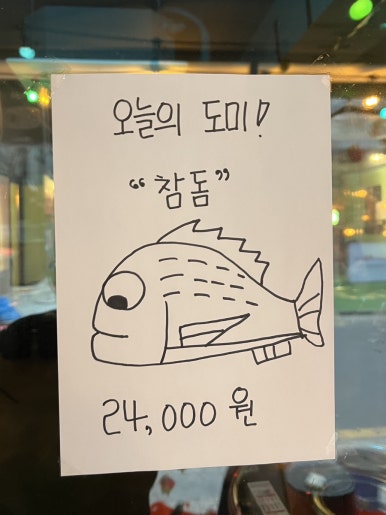 오늘의 도미!
“참돔”
24,000 원